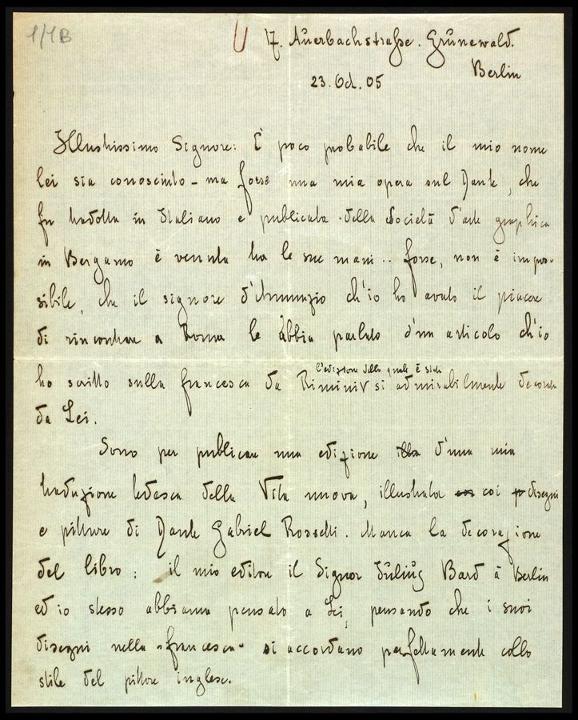 1/1B
17. Auerbachstraße. Grünewald.
Berlin
23. Oct. 05
Illustrissimo Signore: È poco probabile che il mio nome
lei sia conosciuto - ma forse una mia opera sul Dante, che
fu tradotta in Italiano e publicata della Società d'arte graphica
in Bergamo è venuta tra le sue mani .. forse, non è impos-
sibile, che il signore d'Annunzio ch'io ho avuto il piacere
di rincontrare a Roma le abbia parlato d'un articolo ch'io
l'edizione della quale è stata
ho scritto sulla francesca da Rimini si admirabilmente decorata
da Lei.
Sono per publicare una edizione d'una mia
traduzione tedesca della Vita nuova, illustrata coi disegni
e pitture di Dante Gabriel Rossetti. Manca la decorazione
del libro: il mio editore il Signor Julius Bard à Berlin
ed io stesso abbiamo pensato a Lei, pensando che i suoi
disegni nella "francesca" si accordano perfettamente collo
stile del pittore inglese.